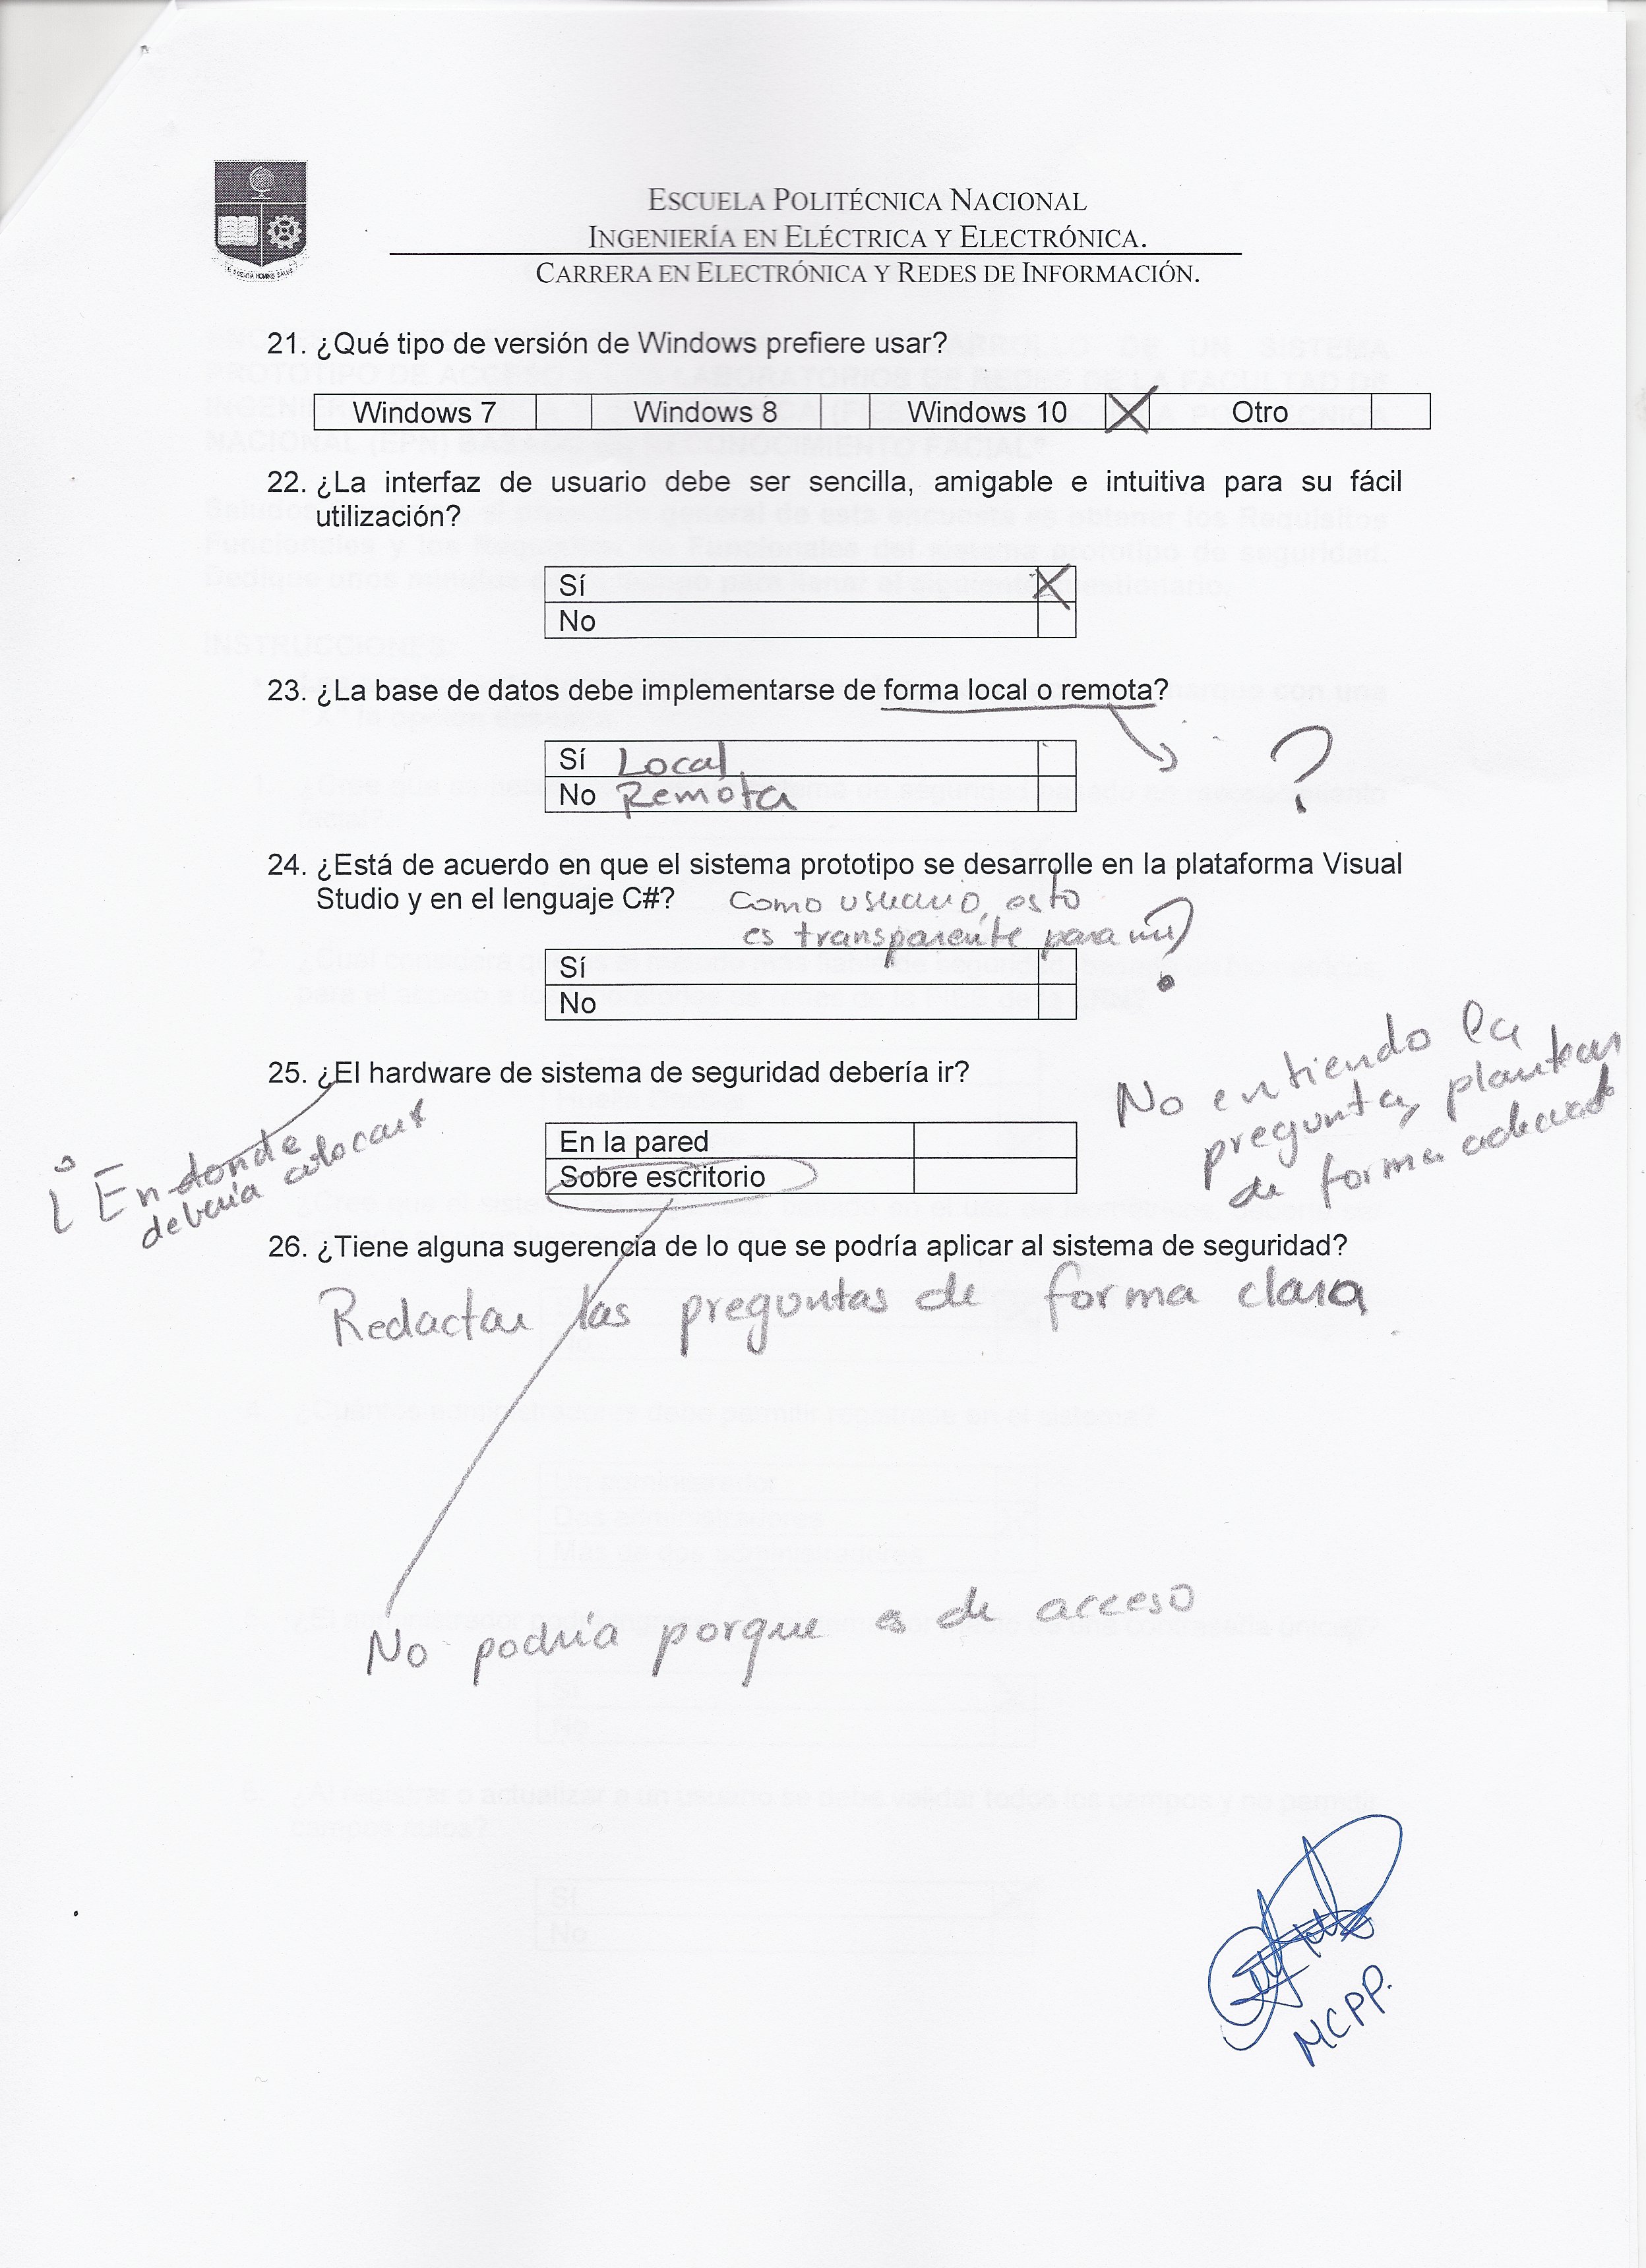 ESCUELA POLITÉCNICA NACIONAL
INGENIERÍA EN ELÉCTRICA Y ELECTRÓNICA.
CARRERA EN ELECTRÓNICA Y REDES DE INFORMACIÓN.
21. ¿Qué tipo de versión de Windows prefiere usar?
Windows 7 Windows 8 Windows 10 X Otro
22. ¿La interfaz de usuario debe ser sencilla, amigable e intuitiva para su fácil
utilización?
Sí X
No
23. ¿La base de datos debe implementarse de forma local o remota?
Sí Local
No Remota
?
24. ¿Está de acuerdo en que el sistema prototipo se desarrolle en la plataforma Visual
Studio y en el lenguaje C#? Como usuario, esto
es transparente para mi
?
Sí
No
25. ¿El hardware de sistema de seguridad debería ir?
No entiendo la
pregunta, plantear
de forma adecuada
¿En donde
debería colocarse
En la pared
Sobre escritorio
26. ¿Tiene alguna sugerencia de lo que se podría aplicar al sistema de seguridad?
Redactar las preguntas de forma clara
No podría porque es de acceso
MCPP.